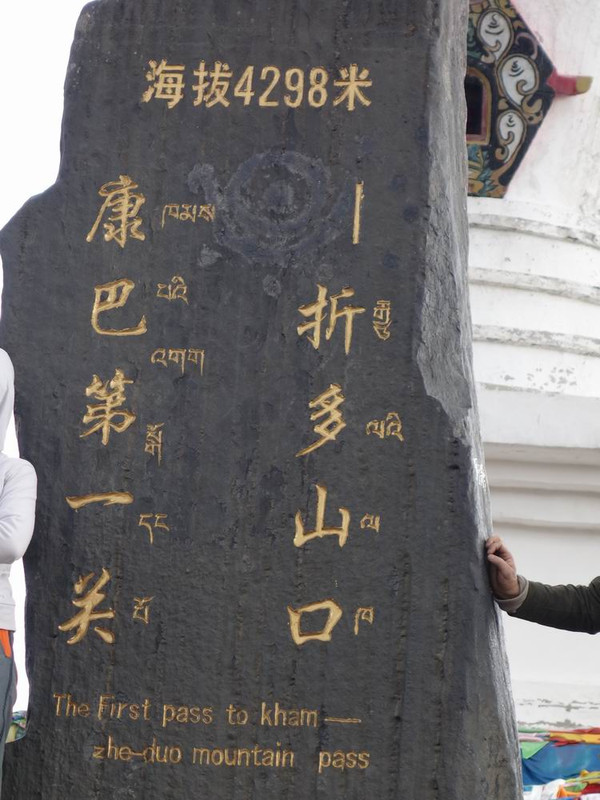 海拔4298米
康巴第一关
ཁམས
པའི
འགག
སྒོ
དང
པོ
—折多山口
ལའི
ལ
ཁ
The First pass to kham —
zhe-duo mountain pass